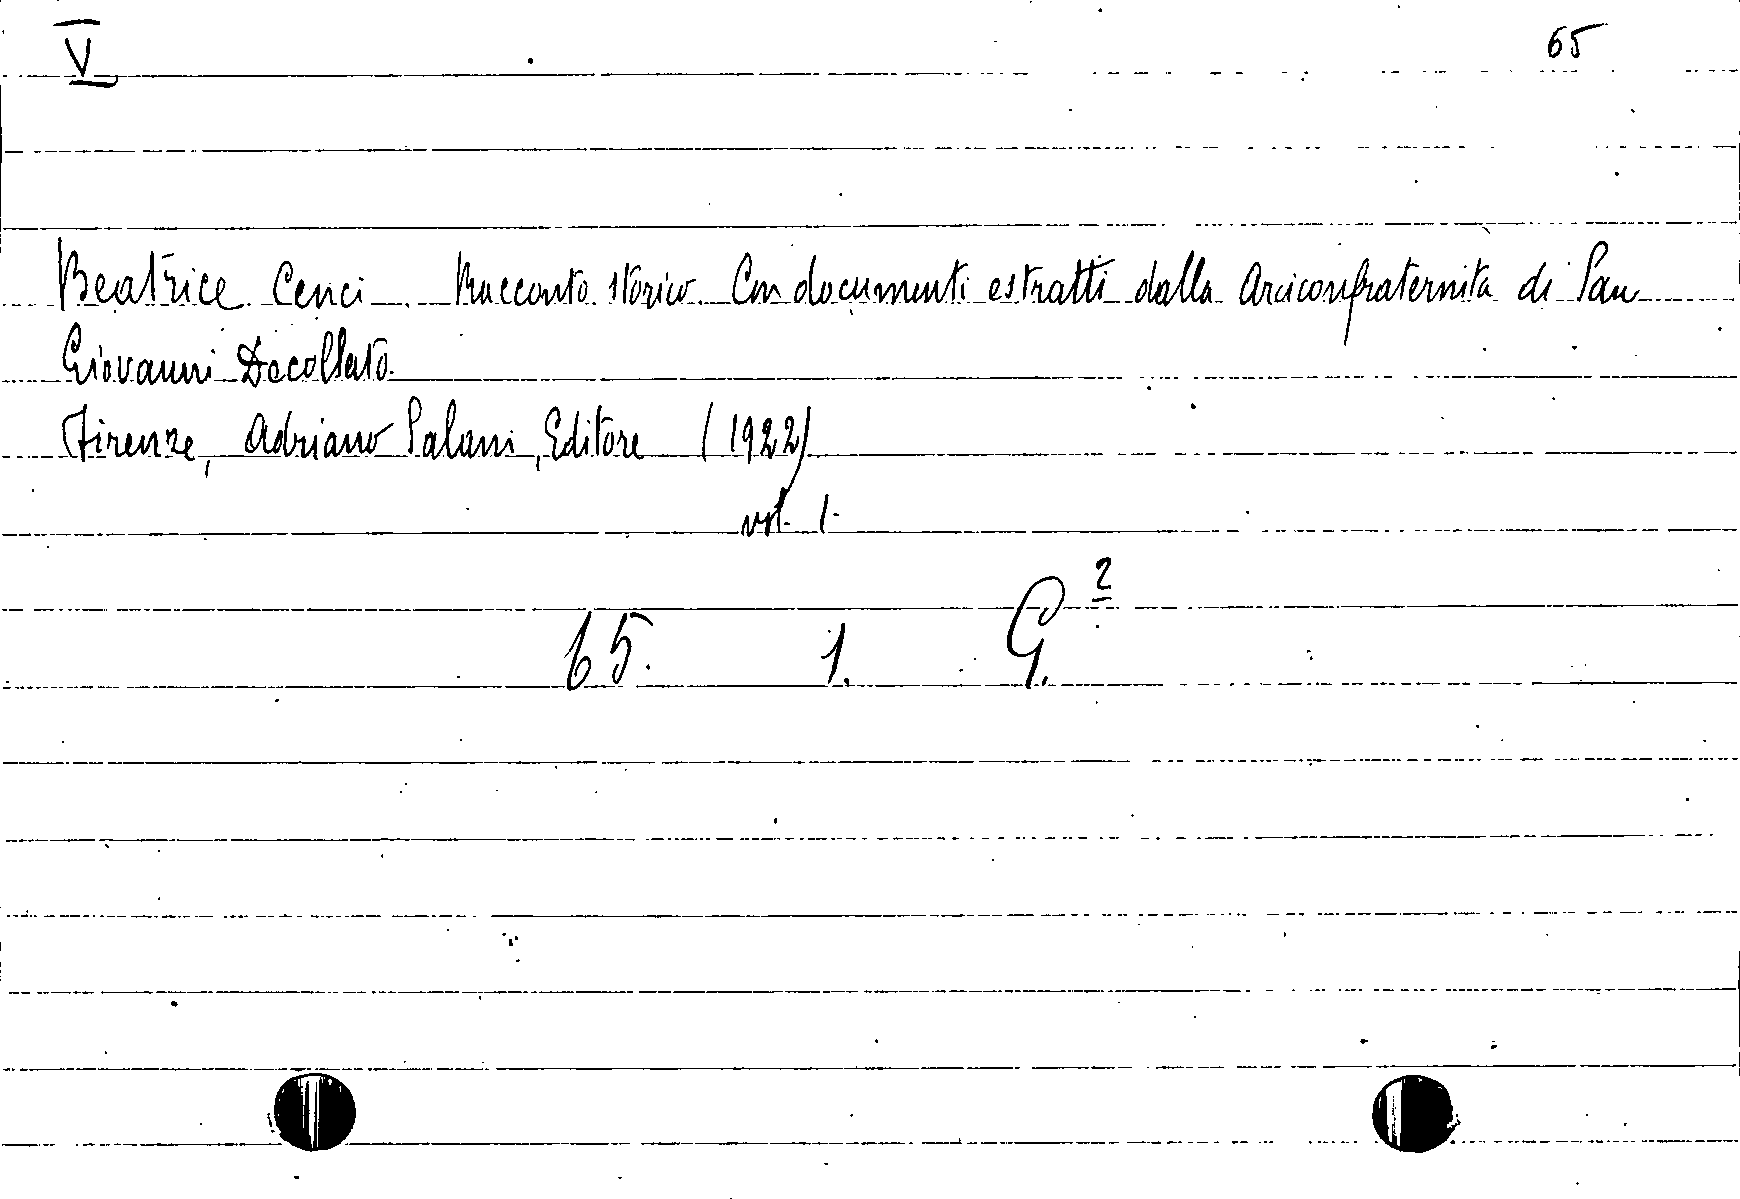 V 65
Beatrice Cenci. Racconto storico. Con documenti estratti dalla Arciconfraternita di San
Giovanni Decollato.
Firenze, Adriano Salani, Editore (1922)
vol. 1.
65. 1. G.²